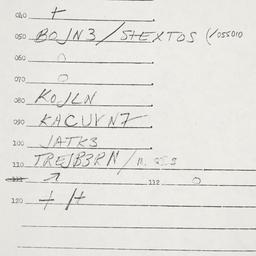 040 +
050 BOJN3 / STEXTOS (/055010
060 O
070 O
080 KOJLN
090 KACUVN7
100 JATK3
110 TREJB3RN /
111 ↗ 112 O
120 + /+